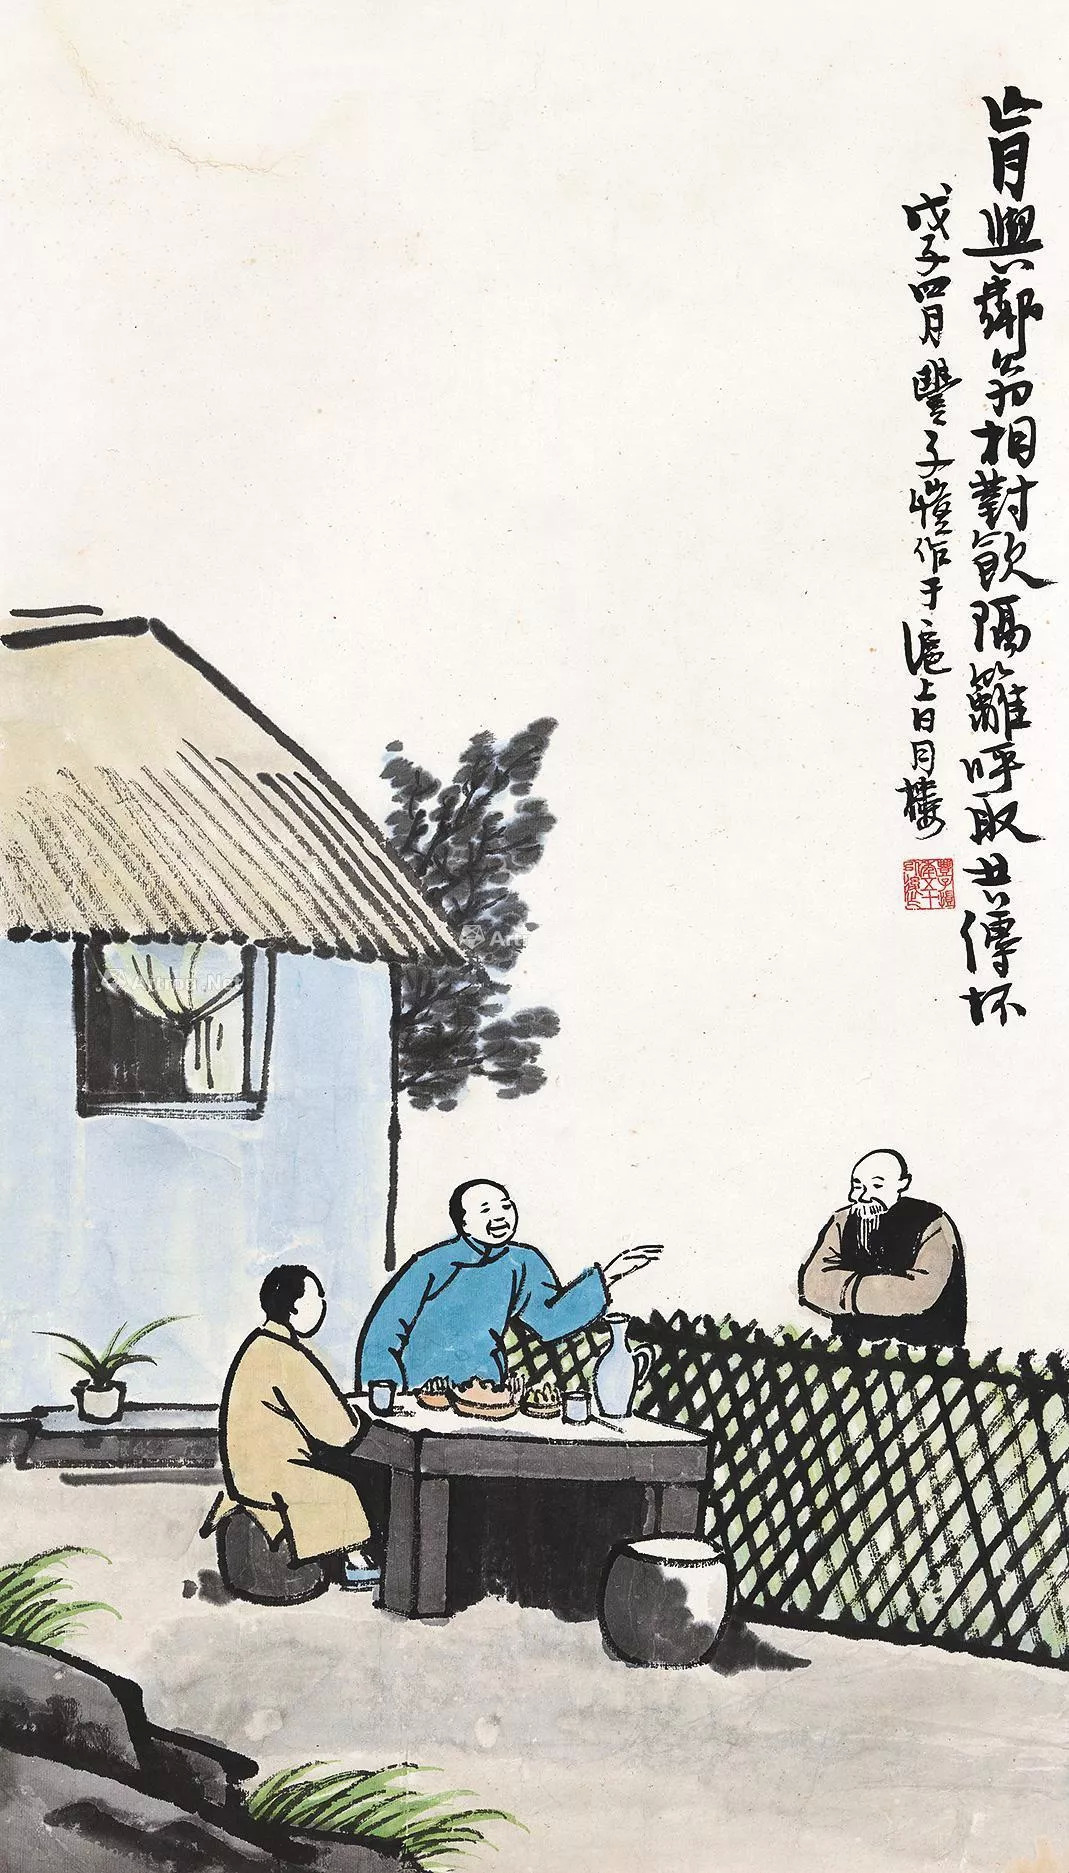 肯與鄰翁相對飲隔籬呼取共傳杯
戊子四月豐子愷作于滬上日月樓
Artron.Net